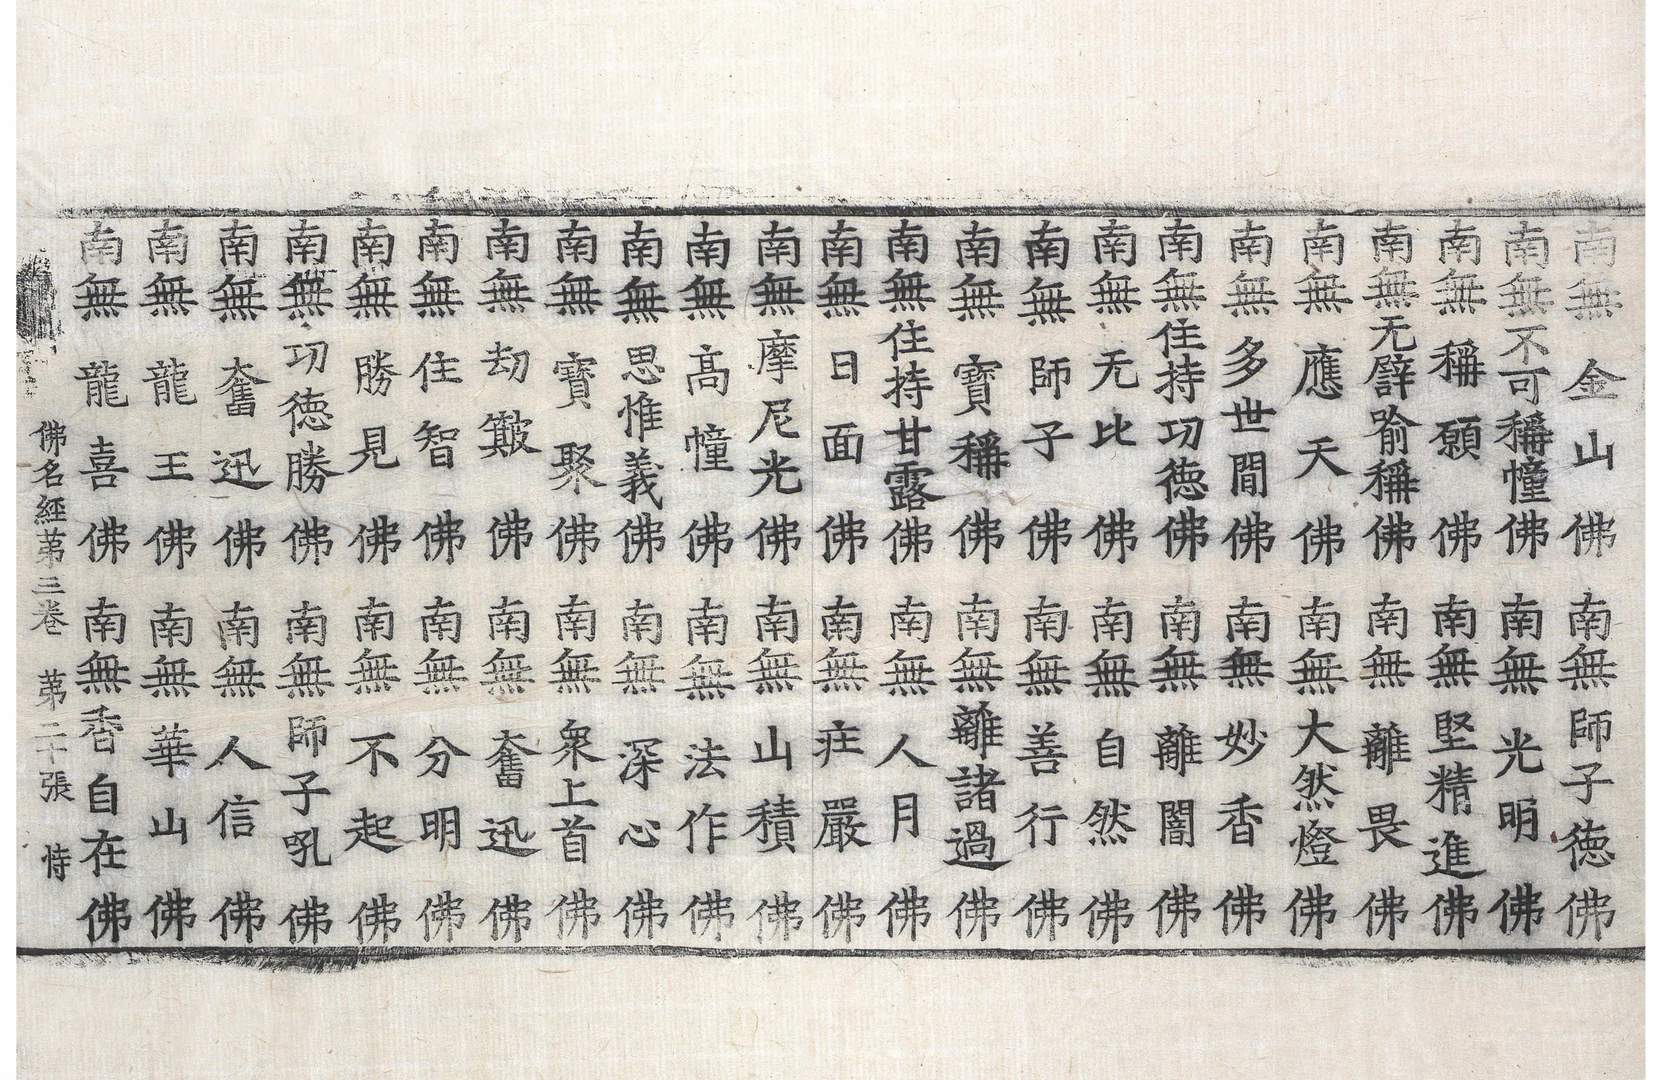 南無金山佛南無師子德佛
南無不可稱幢佛南無光明佛
南無稱願佛南無堅精進佛
南無无譬喻稱佛南無離畏佛
南無應天佛南無大然燈佛
南無多世間佛南無妙香佛
南無住持功德佛南無離闇佛
南無无比佛南無自然佛
南無師子佛南無善行佛
南無寶稱佛南無離諸過佛
南無住持甘露佛南無人月佛
南無日面佛南無莊嚴佛
南無摩尼光佛南無山積佛
南無高幢佛南無法作佛
南無思惟義佛南無深心佛
南無寶聚佛南無衆上首佛
南無劫佛南無奮迅佛
南無住智佛南無分明佛
南無勝見佛南無不起佛
南無功德勝佛南無師子吼佛
南無奮迅佛南無人信佛
南無龍王佛南無華山佛
南無龍喜佛南無香自在佛
佛名經第三卷 第二十張 恃